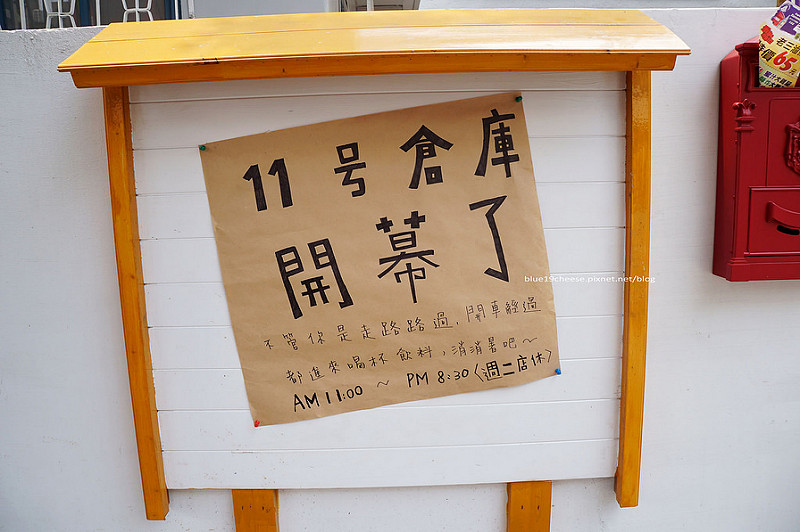 11号倉庫
開幕了
不管你是走路路過,開車經過
都進來喝杯飲料,消消暑吧～
AM 11:00 ～ PM 8:30〈週二店休〉
blue19cheese.pixnet.net/blog
老三
特價65元